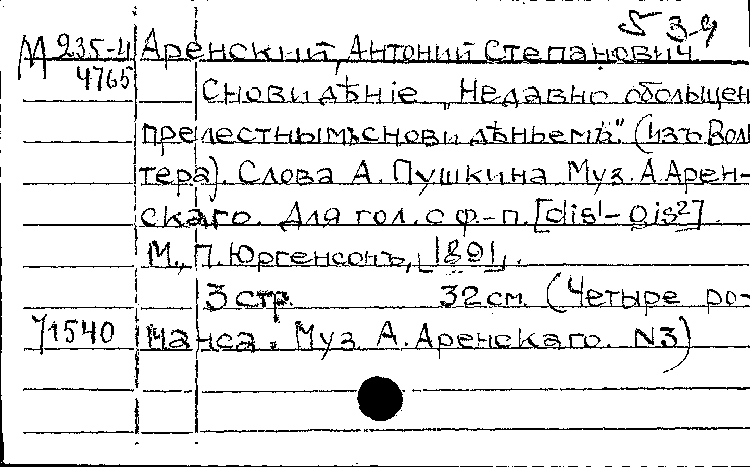 S 3-9
М 235-4 Аренский, Антоний Степанович.
4765 Сновидѣнiе „Недавно обольщен
прелестнымъ сновидѣньемъ". (Изъ Воль
тера). Слова А. Пушкина Муз. А. Арен-
скаго. Для гол. с ф.-п. [dis¹ - gis²].
М., П. Юргенсонъ, [1891].
3 стр. 32 см. (Четыре ро-
71540 манса. Муз. А. Аренскаго. N3)